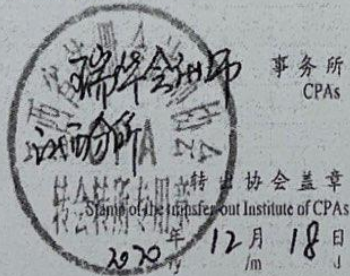 瑞华会计师 事务所
CPAs
江西分所
转会转所专用章
转出协会盖章
Stamp of the transfer-out Institute of CPAs
2020年 12月 18日
/y /m /d